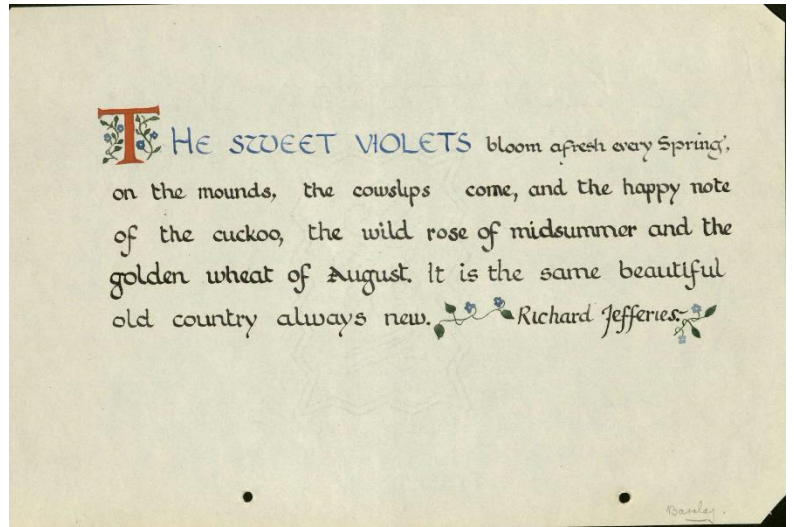 THE SWEET VIOLETS bloom afresh every Spring,
on the mounds, the cowslips come, and the happy note
of the cuckoo, the wild rose of midsummer and the
golden wheat of August. It is the same beautiful
old country always new. Richard Jefferies.